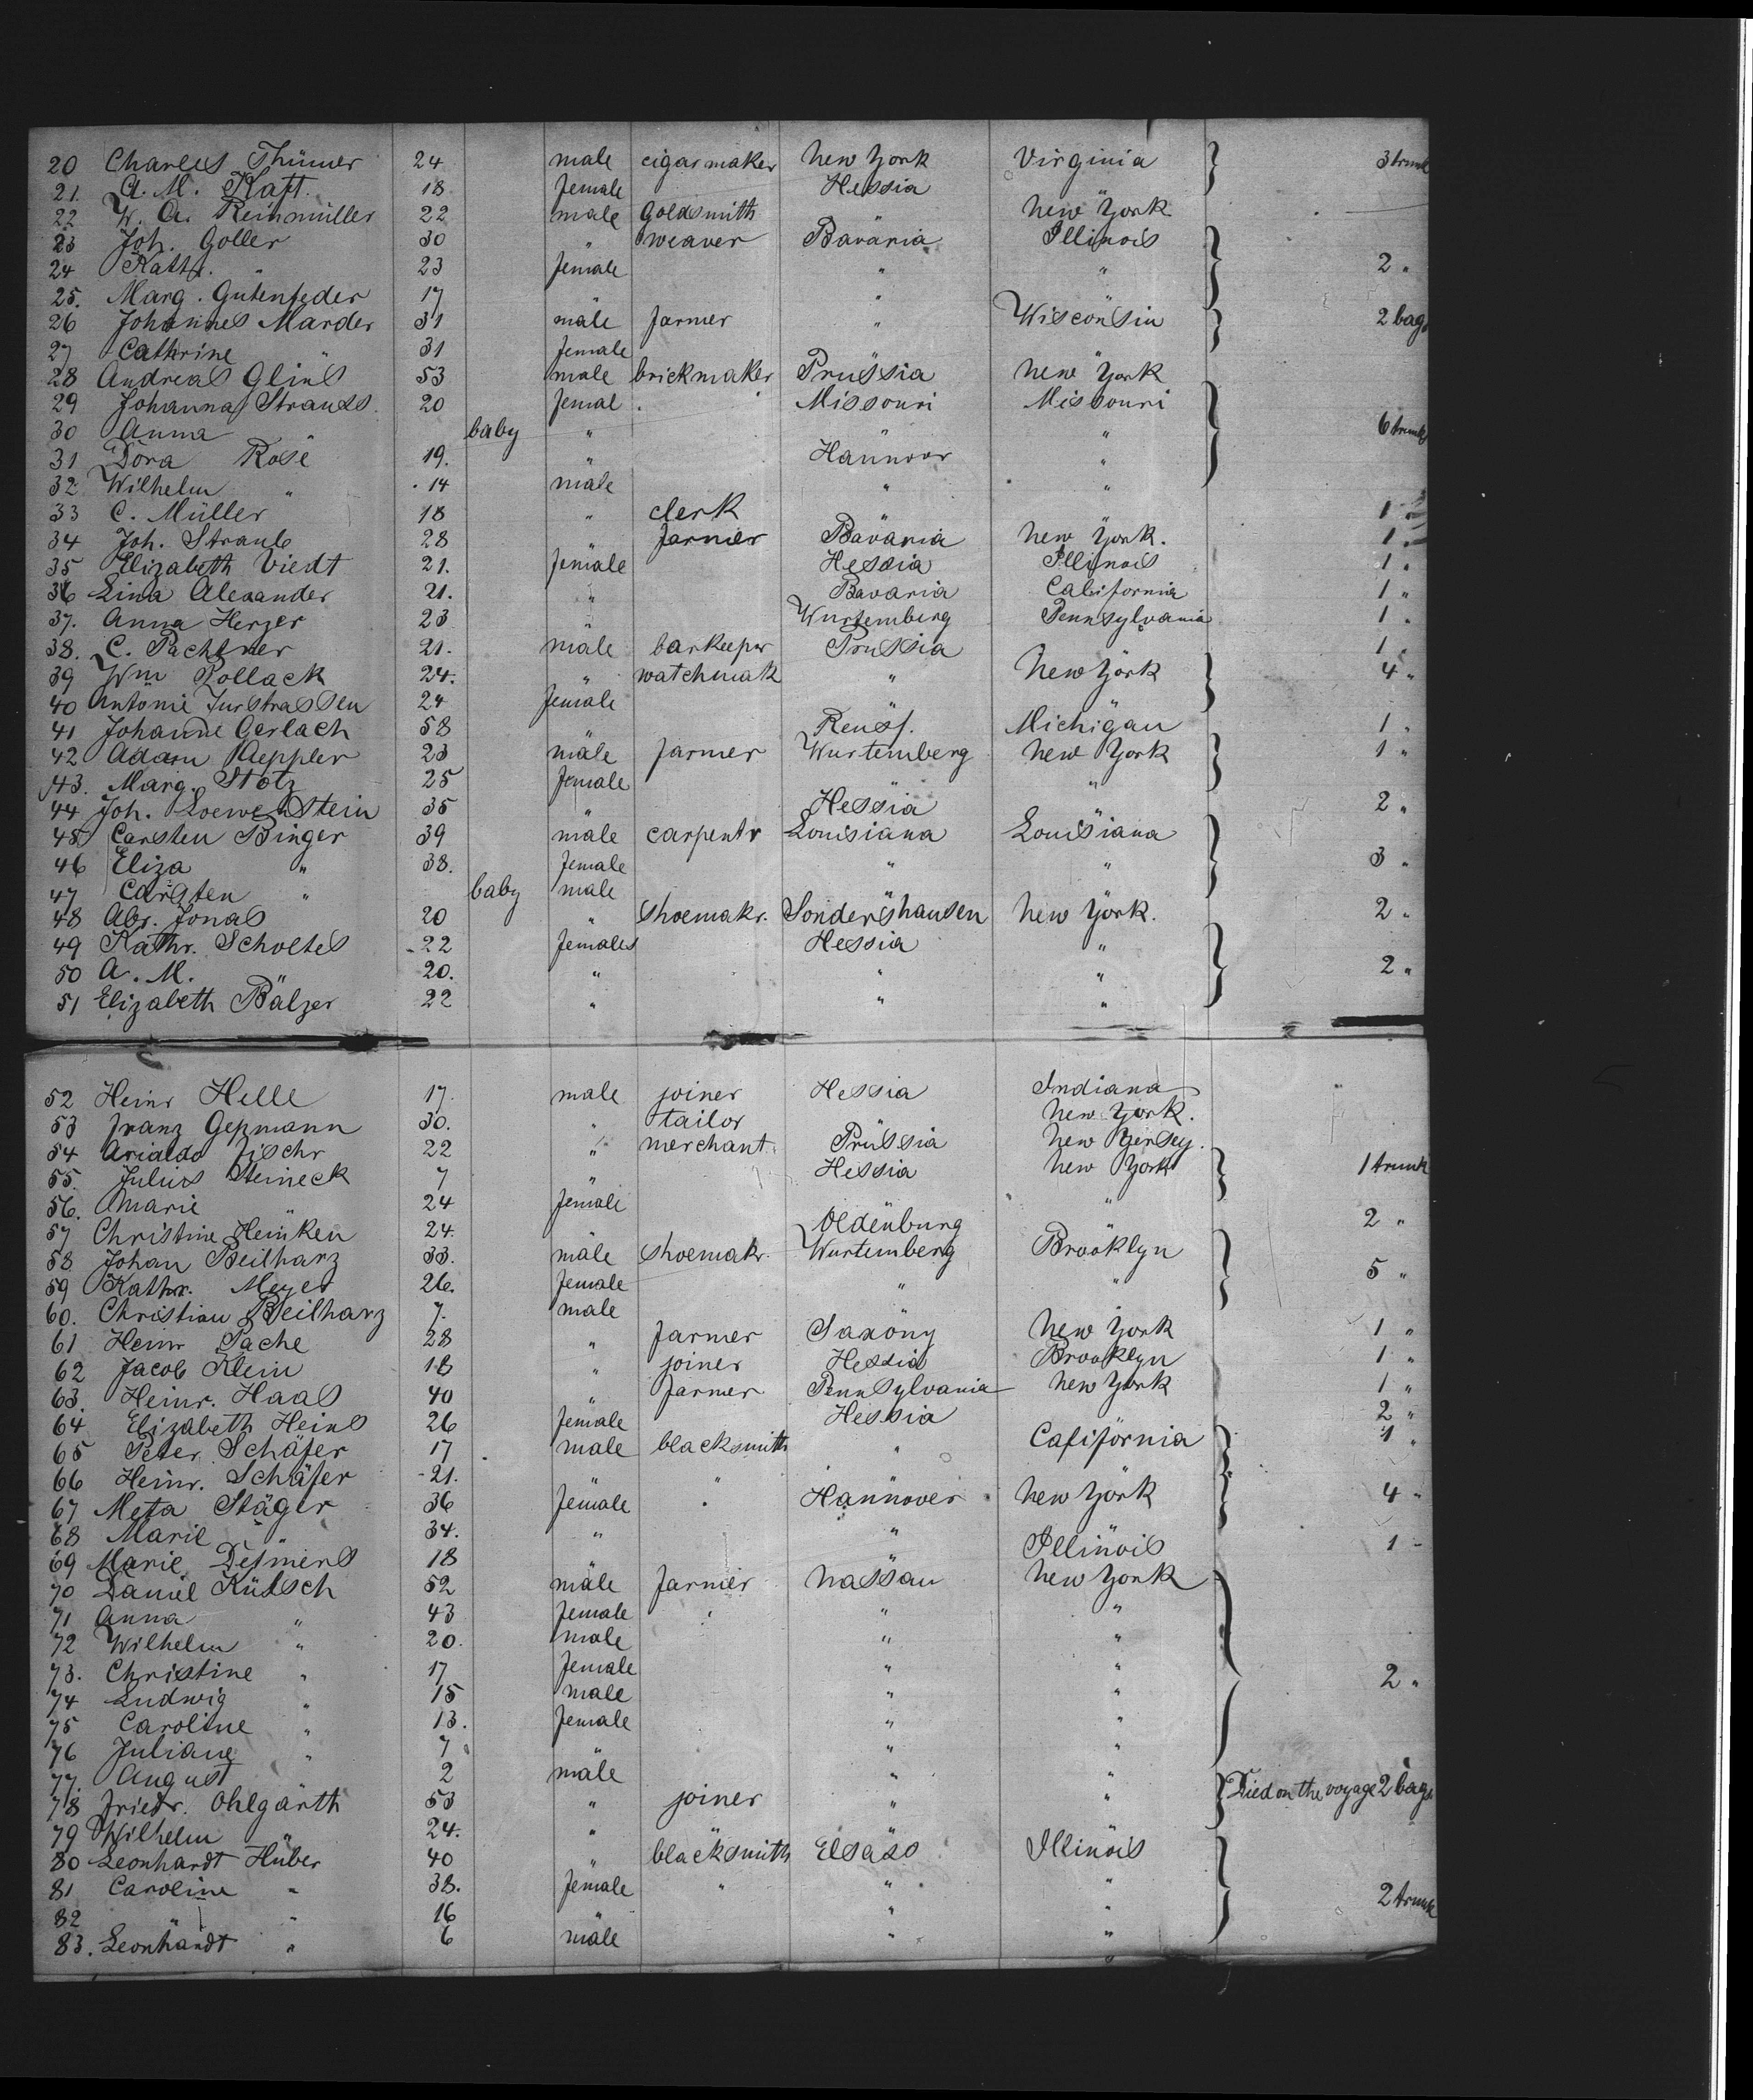 20 Charles Thümer 24 male cigarmaker New York Virginia 3 trunk
21. A. M. Kaft. 18 female Hessia "
22 W. A. Reinmüller 22 male Goldsmith " New York
23 Joh. Goller 30 " weaver Bavaria Illinois
24 Kath. " 23 female " " 2 "
25. Marg. Gutenfeder 17 " " "
26 Johannes Marder 31 male farmer " Wisconsin 2 bags
27 Cathrine " 31 female " "
28 Andreas Glins 53 male brickmaker Prussia New York
29 Johanna Strauss 20 femal Missouri Missouri
30 Anna " baby " " " 6 trunks
31 Dora Rose 19. " Hannovr "
32 Wilhelm " 14 male " "
33 C. Müller 18 " clerk " " 1 "
34 Joh. Straub 28 " farmer Bavaria New York. 1 "
35 Elizabeth Viedt 21. female Hessia Illinois 1 "
36 Lina Alexander 21. " Bavaria California 1 "
37. Anna Herzer 23 " Wurtemberg Pennsylvania 1 "
38. C. Pachtner 21. male barkeeper Prussia " 1 "
39 Wm Pollack 24. " watchmak " New York 4 "
40 Antonie Furstrassen 24 female " "
41 Johanne Gerlach 58 " Reuss. Michigan 1 "
42 Adam Aeppler 23 male farmer Wurtemberg New York 1 "
43. Marg. Stotz 25 female " "
44 Joh. Loewenstein 35 " Hessia " 2 "
45 Carsten Binger 39 male carpentr Louisiana Louisiana
46 Eliza " 38. female " " 3 "
47 Carsten " baby male " "
48 Abr. Jonas 20 " shoemakr. Sondershausen New York. 2 "
49 Kathr. Scholtes 22 females Hessia "
50 A. M. 20. " " " 2 "
51 Elizabeth Bälzer 22 " " "
52 Heinr Helle 17. male joiner Hessia Indiana
53 Franz Gepmann 30. " tailor " New York.
54 Arialdo Fischr 22 " merchant Prussia New Yersey.
55. Julius Steineck 7 " Hessia New York 1 trunk
56. Marie " 24 female " "
57 Christine Heinken 24. " Oldenburg " 2 "
58 Johan Beilharz 33. male shoemakr. Wurtemberg Brooklyn
59 Kathr. Meyer 26. female " " 5 "
60. Christian Beilharz 7. male " "
61 Heinr Pache 28 " farmer Saxony New York 1 "
62 Jacob Klein 18 " joiner Hessia Brooklyn 1 "
63. Heinr. Haas 40 " farmer Pennsylvania New York 1 "
64 Elizabeth Heins 26 female Hessia " 2 "
65 Peter Schäfer 17 male blacksmith " California 1 "
66 Heinr. Schäfer 21. " " " "
67 Meta Stäger 36 female Hannover New York 4 "
68 Marie " 34. " " "
69 Marie Detmers 18 " " Illinois 1 "
70 Daniel Kütsch 52 male farmer Nassau New York
71 Anna " 43 female " "
72 Wilhelm " 20. male " "
73. Christine " 17 female " "
74 Ludwig " 15 male " " 2 "
75 Caroline " 13. female " "
76 Juliane " 7 " " "
77. August " 2 male " "
78 Friedr. Ohlgarth 53 " joiner " " Died on the voyage 2 bags
79 Wilhelm " 24. " " " "
80 Leonhardt Huber 40 " blacksmith Elsass Illinois
81 Caroline " 38. female " "
82 " " 16 " " " 2 trunk
83. Leonhardt " 6 male " "